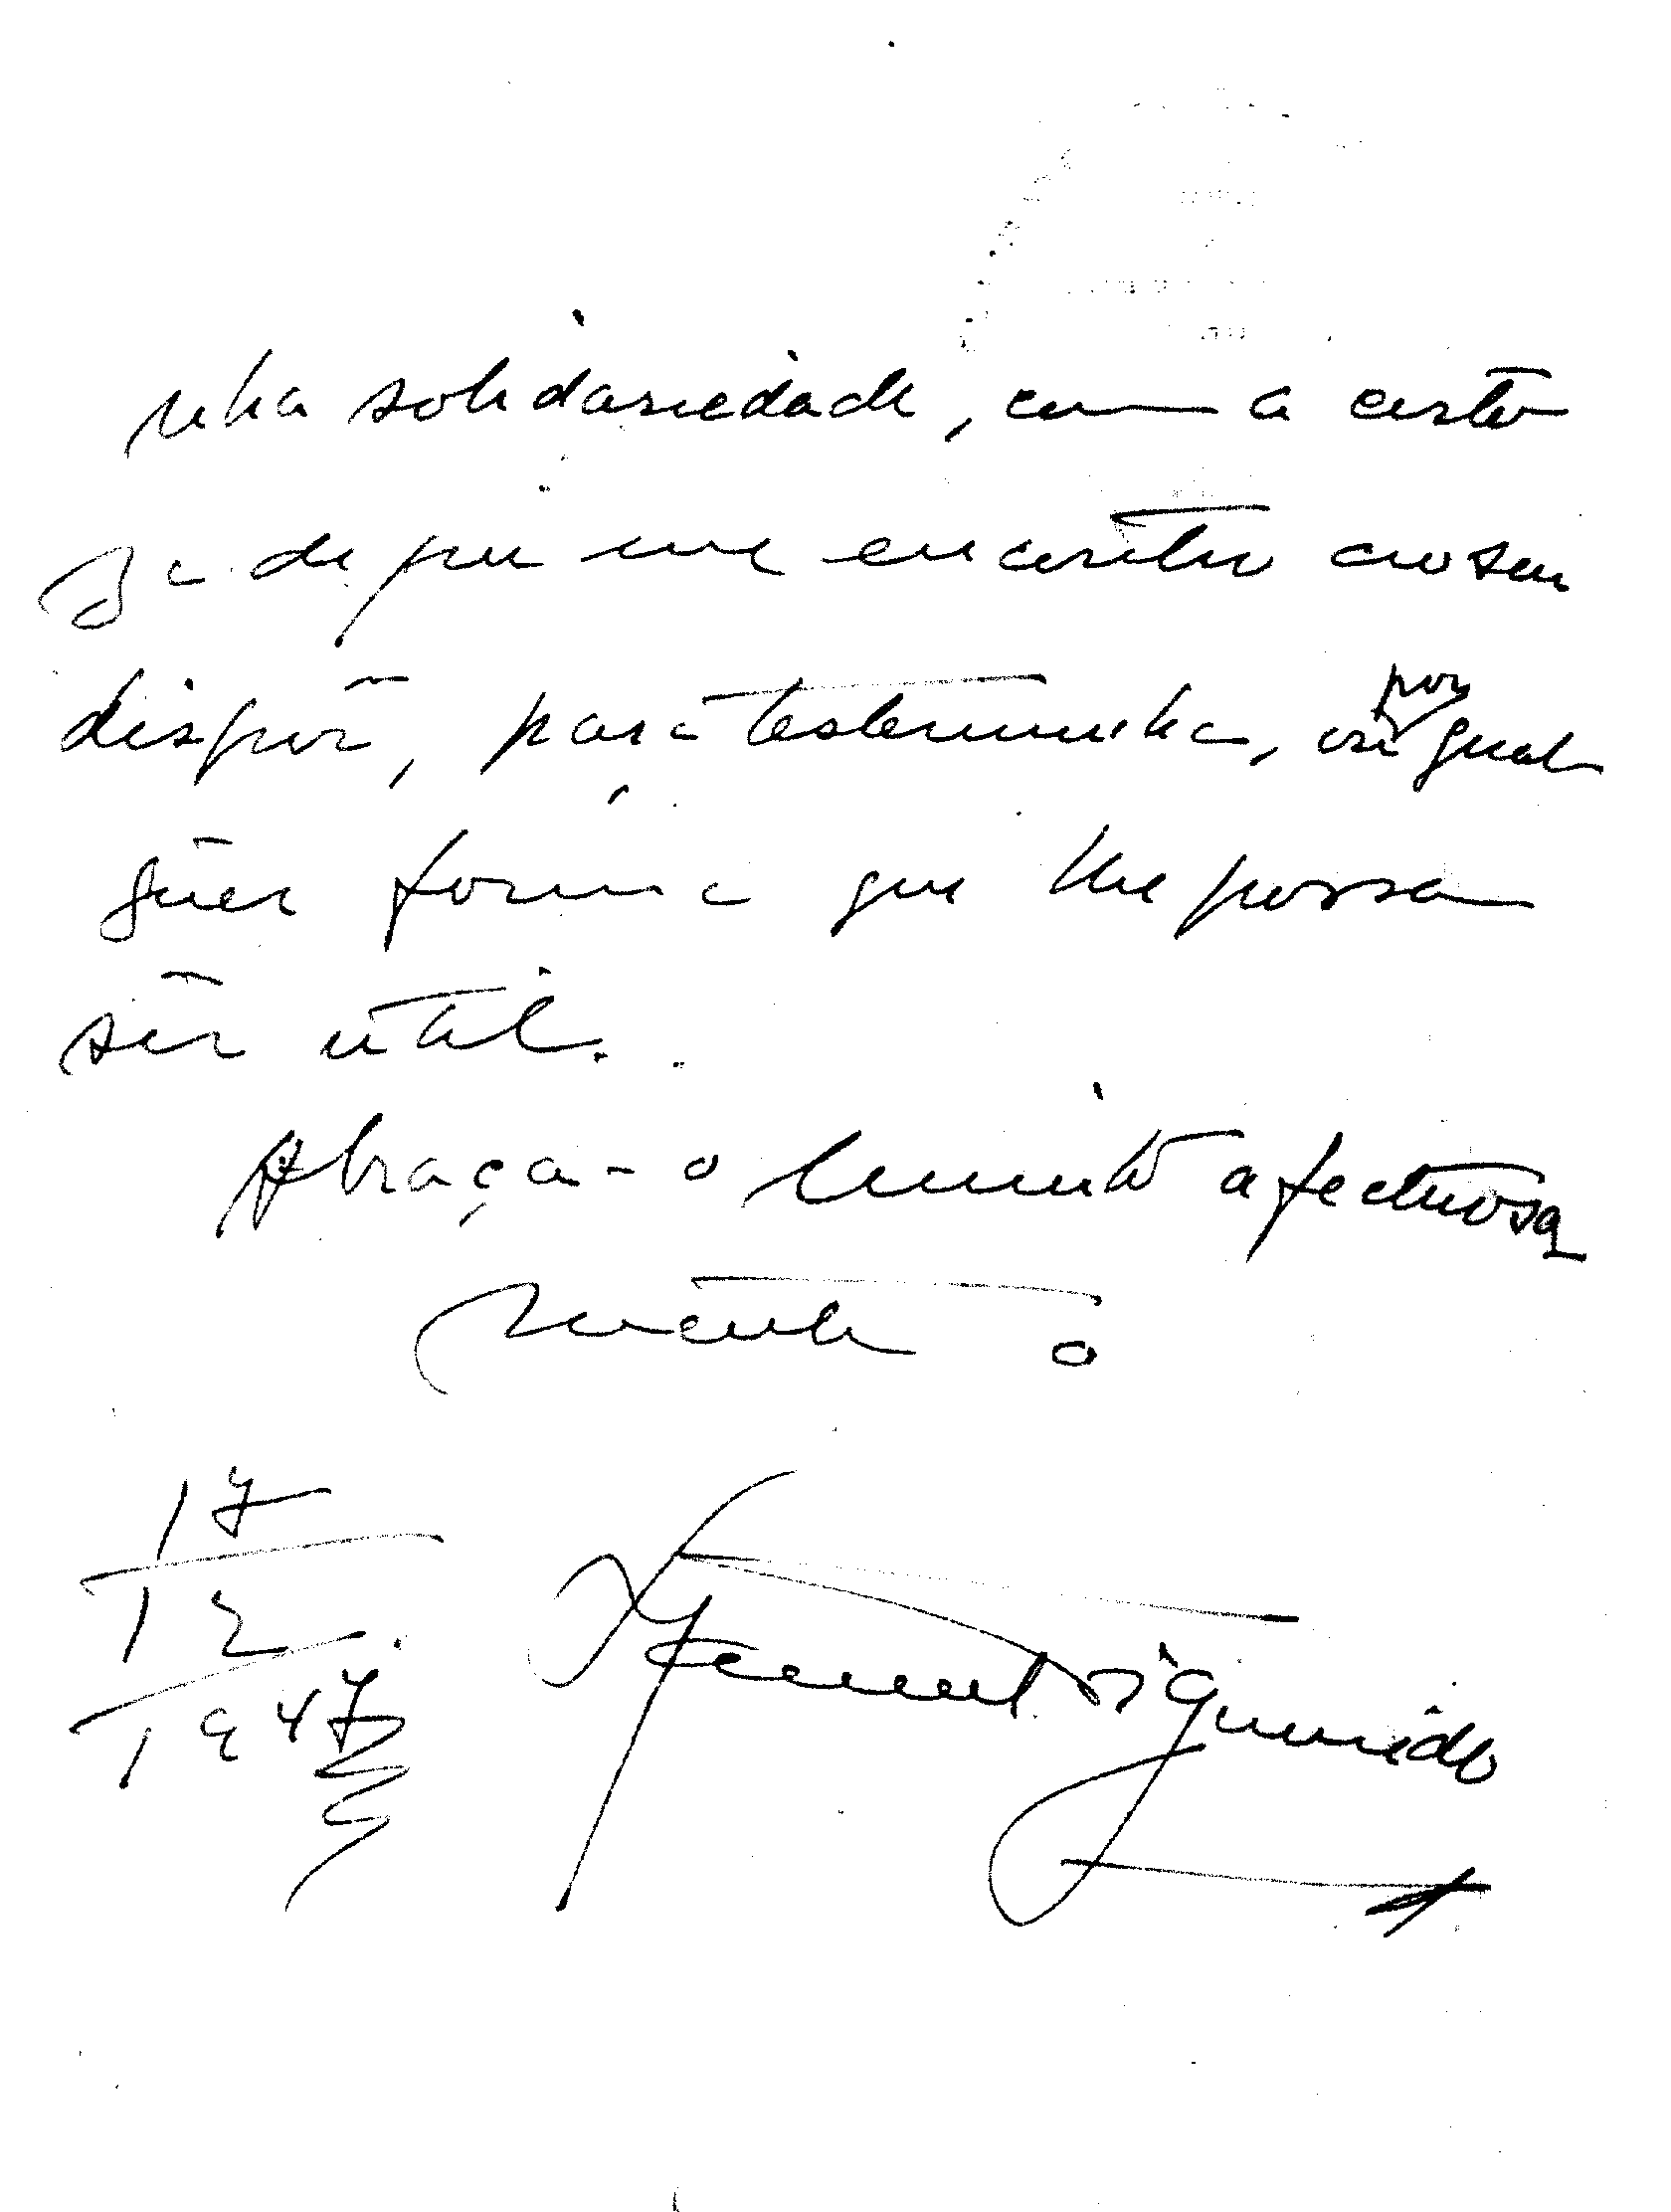 nha solidariedade, com a certe
za de que me encontro ao seu
dispôr, para testemunha, ou por qual
quer forma que lhe possa
sêr util.
Abraça-o muito afectuosa
mente o
17
12
1947